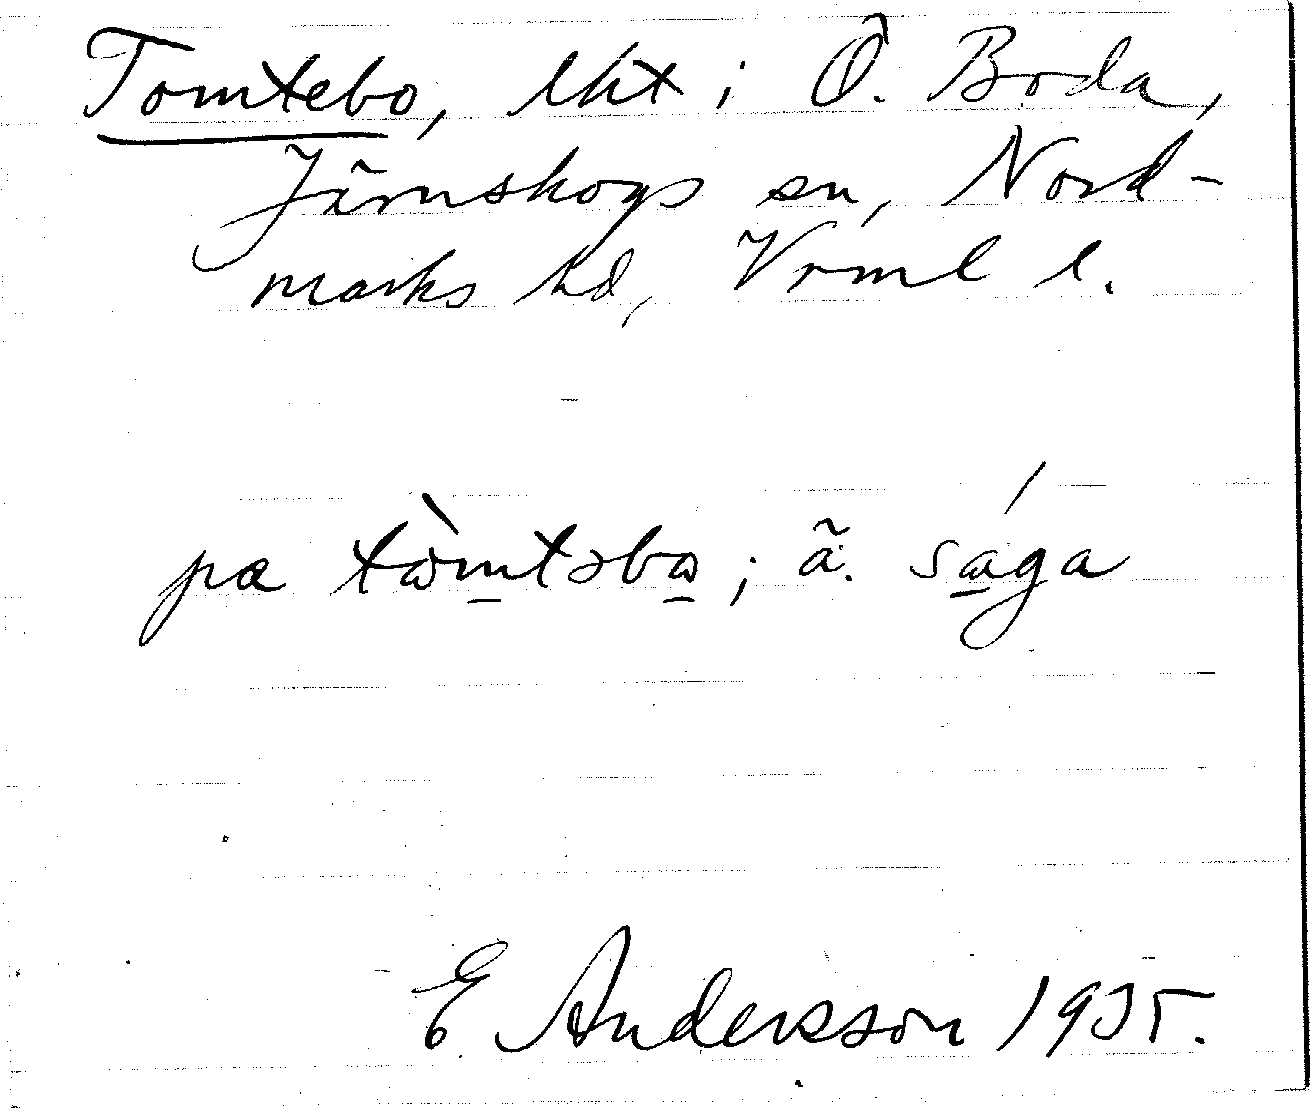 Tomtebo, lht i Ö. Boda,
Järnskogs sn, Nord-
marks hd, Vrml l.
pa tòmtəbo; ä. sága
E Andersson 1935.